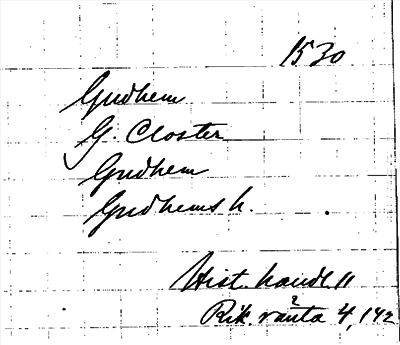 1530
Gudhem
G. Closter
Gudhem
Gudhems h.
Hist. handl. 11
Rik. ränta 4, 142